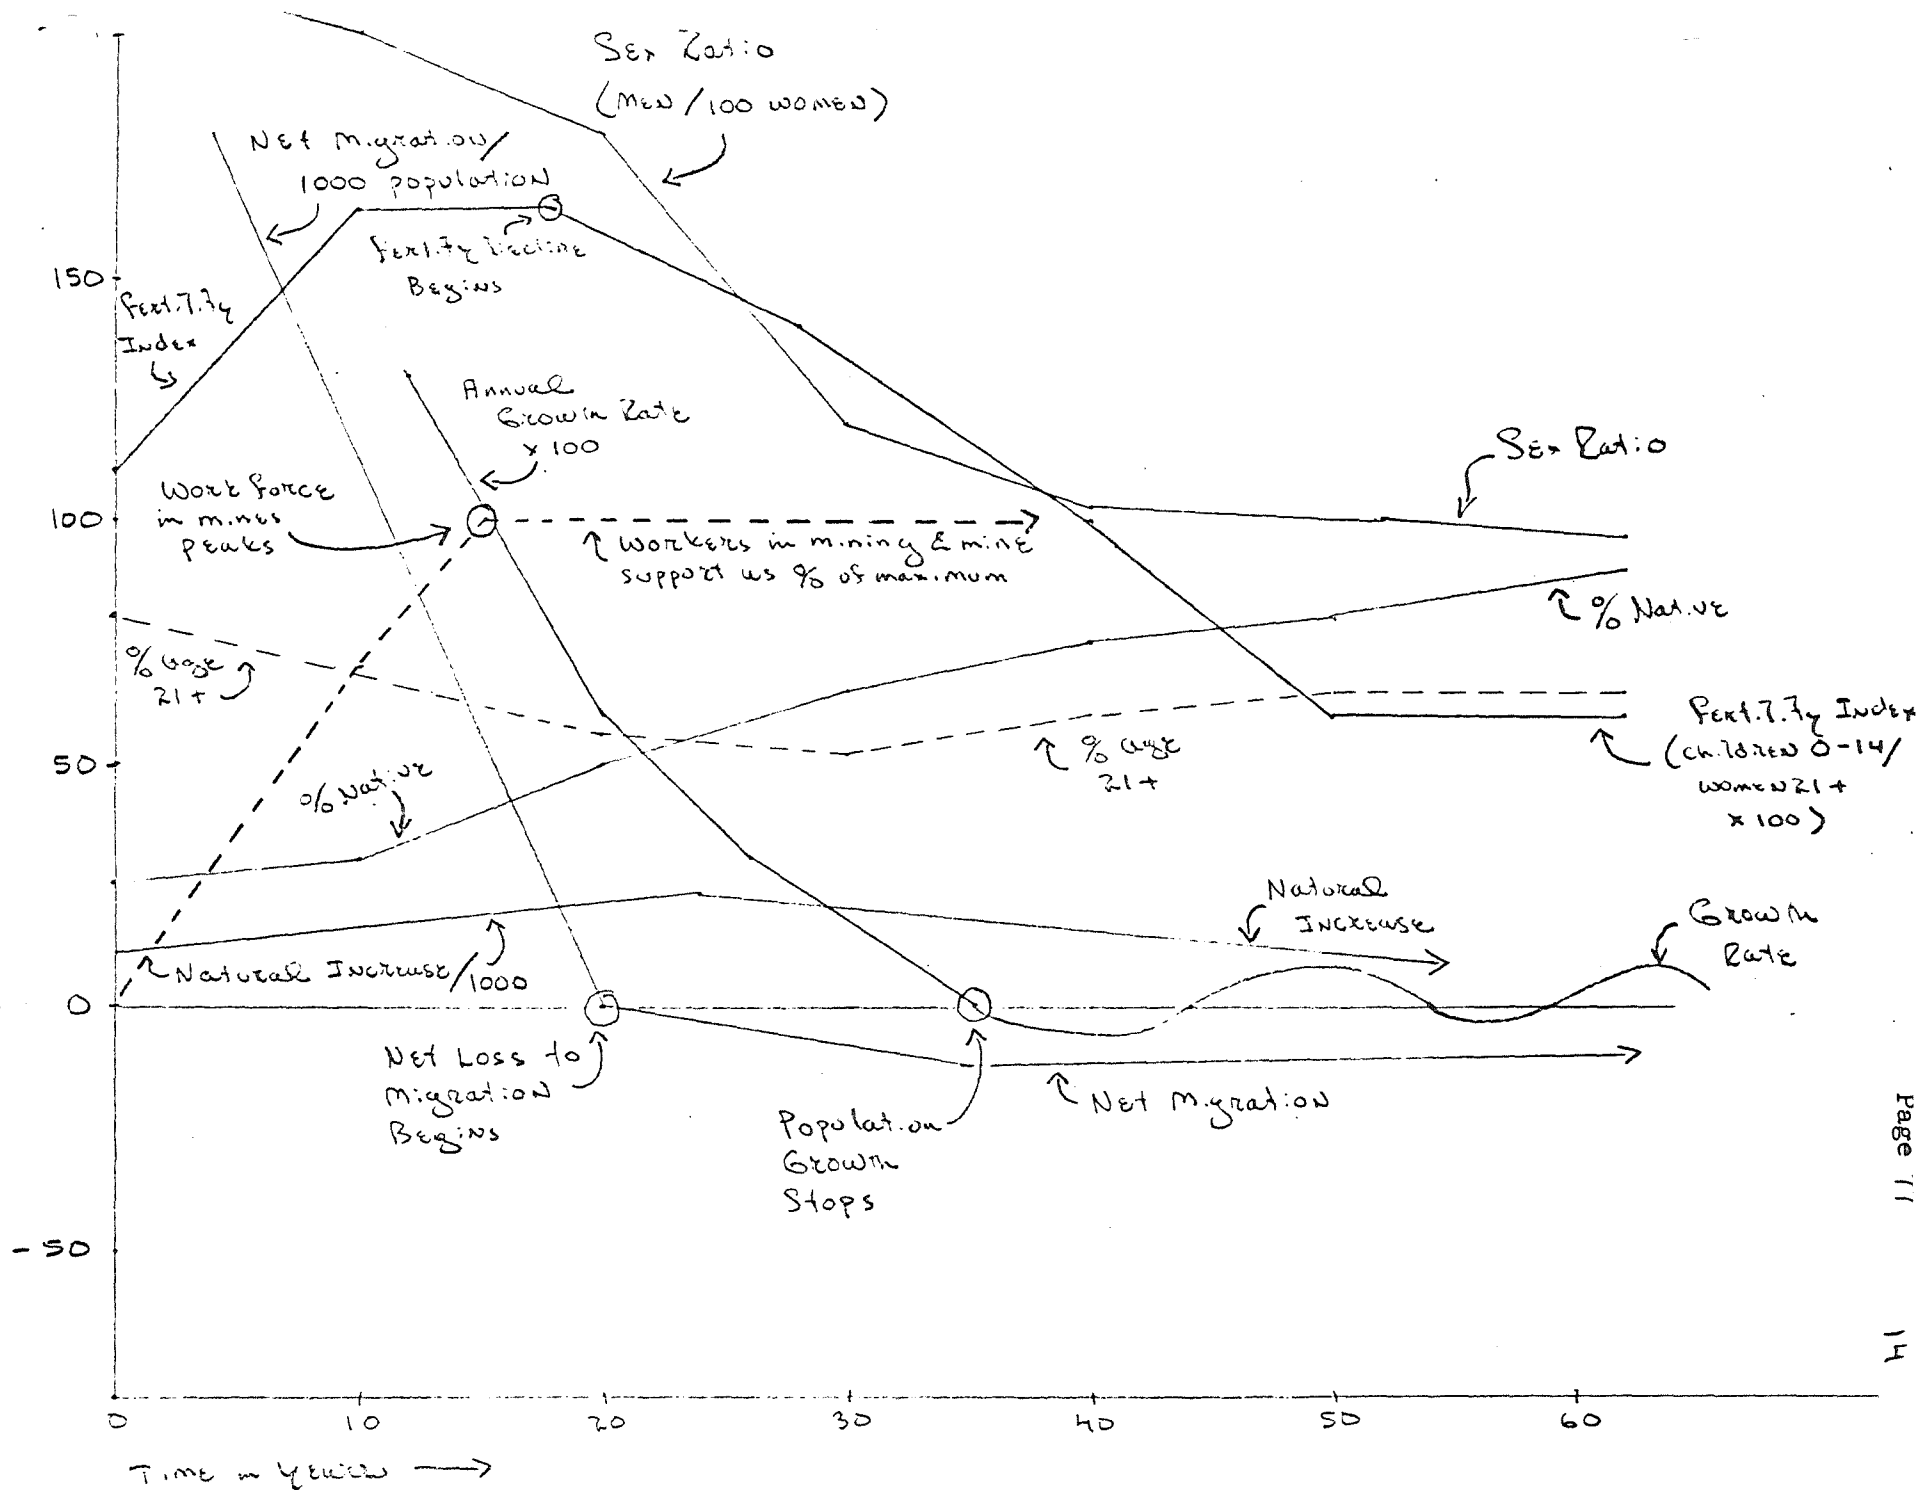 Sex Ratio
(MEN/100 WOMEN)
Net Migration/
1000 population
Fertility Decline
Begins
150
Fertility
Index
Annual
Growth Rate
x 100
Sex Ratio
Work force
in mines
peaks
100
Workers in mining & mine
support as % of maximum
% Native
% age
21+
Fertility Index
(children 0-14/
women 21+
x 100)
% age
21+
50
% Native
Natural
Increase
Growth
Rate
Natural Increase/1000
0
Net Loss to
Migration
Begins
Population
Growth
Stops
Net Migration
-50
0 10 20 30 40 50 60
Time in Years
Page 77
14